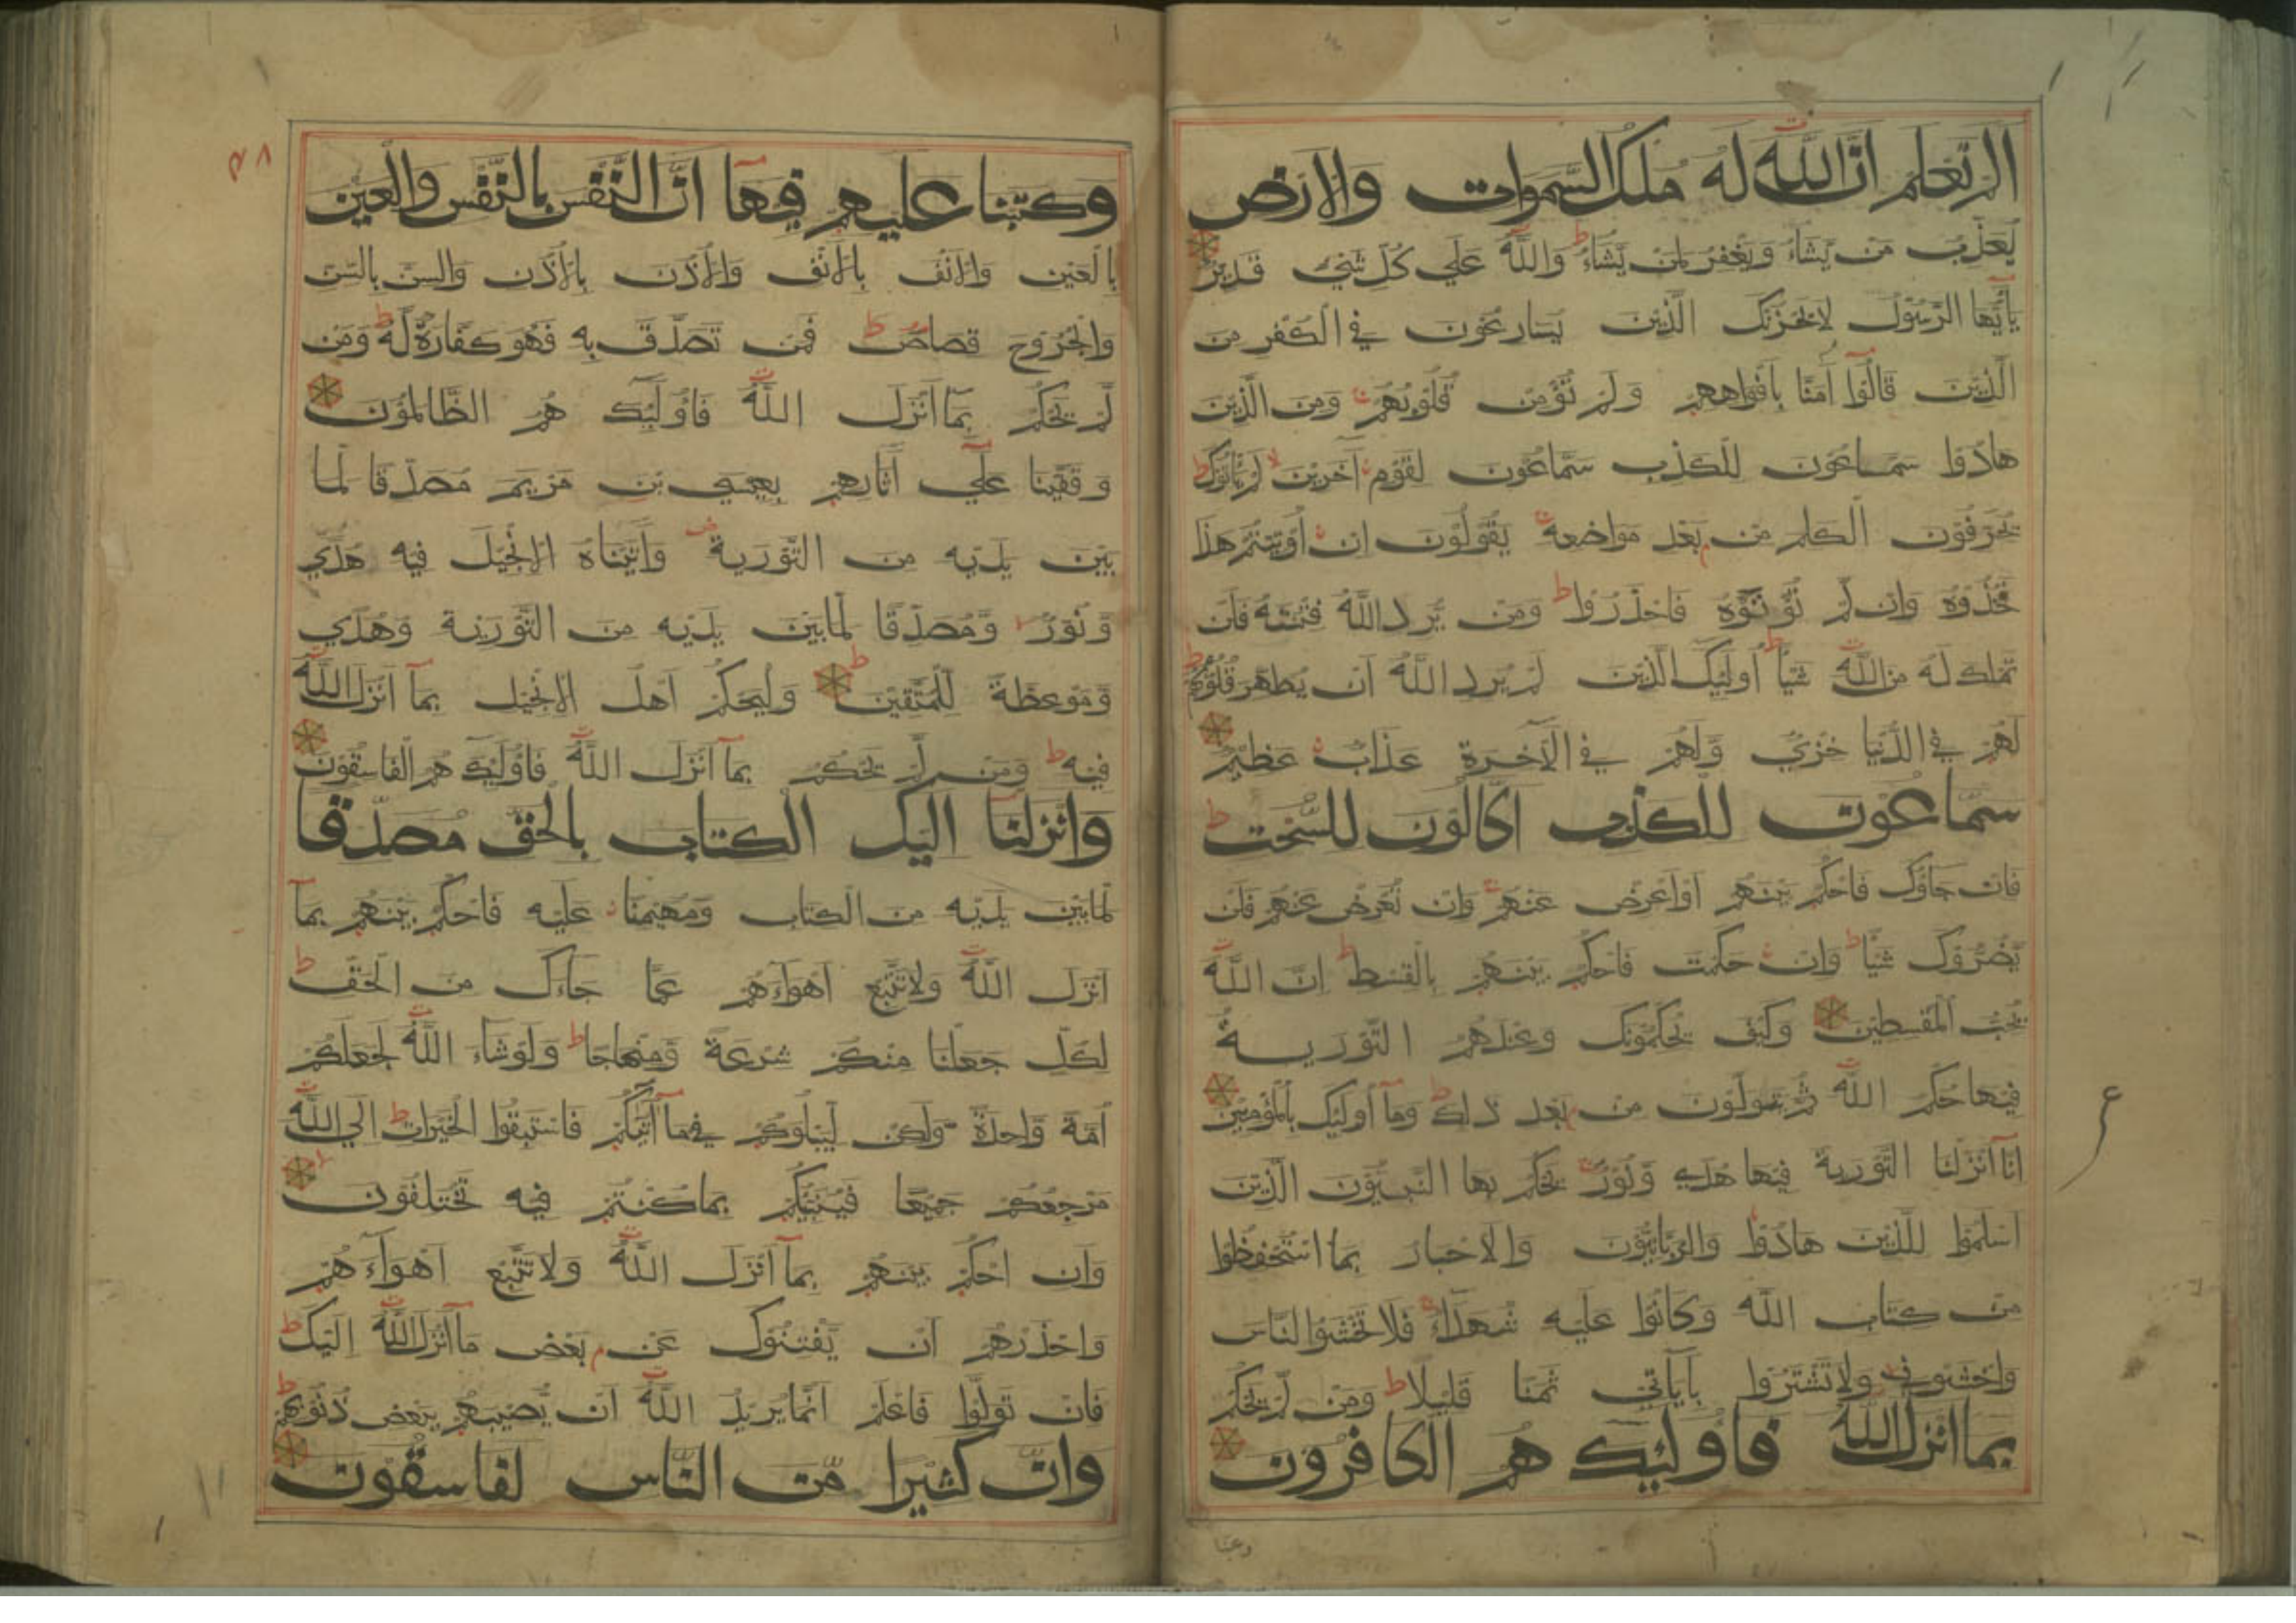 الم تعلم ان الله له ملك السموات والارض
يعذب من يشاء ويغفر لمن يشاء ط والله على كل شيء قدير
يا أيها الرسول لا يحزنك الذين يسارعون في الكفر من
الذين قالوا آمنا بافواههم ولم تؤمن قلوبهم ومن الذين
هادوا سماعون للكذب سماعون لقوم آخرين لا لم يأتوك ط
يحرفون الكلم من بعد مواضعه يقولون ان اوتيتم هذا
فخذوه وان لم تؤتوه فاحذروا ط ومن يرد الله فتنته فلن
تملك له من الله شيأ ط أولئك الذين لم يرد الله ان يطهر قلوبهم ط
لهم في الدنيا خزي ولهم في الآخرة عذاب عظيم
سماعون للكذب اكالون للسحت ط
فان جاؤك فاحكم بينهم او اعرض عنهم وان تعرض عنهم فلن
يضروك شيأ ط وان حكمت فاحكم بينهم بالقسط ط ان الله
يحب المقسطين وكيف يحكمونك وعندهم التورية
فيها حكم الله ثم يتولون من بعد ذلك ط وما أولئك بالمؤمنين
انا انزلنا التورية فيها هدى ونور يحكم بها النبيون الذين
اسلموا للذين هادوا والربانيون والاحبار بما استحفظوا
من كتاب الله وكانوا عليه شهداء فلا تخشوا الناس
واخشوني ولا تشتروا بآياتي ثمنا قليلا ط ومن لم يحكم
بما انزل الله فاولئك هم الكافرون
وكتبنا
ع
٣٨
وكتبنا عليهم فيها ان النفس بالنفس والعين
بالعين والانف بالانف والاذن بالاذن والسن بالسن
والجروح قصاص ط فمن تصدق به فهو كفارة له ط ومن
لم يحكم بما انزل الله فاولئك هم الظالمون
وقفينا على آثارهم بعيسى بن مريم مصدقا لما
بين يديه من التورية وآتيناه الانجيل فيه هدى
ونور ومصدقا لما بين يديه من التورية وهدى
وموعظة للمتقين ط وليحكم اهل الانجيل بما انزل الله
فيه ط ومن لم يحكم بما انزل الله فاولئك هم الفاسقون
وانزلنا اليك الكتاب بالحق مصدقا
لما بين يديه من الكتاب ومهيمنا عليه فاحكم بينهم بما
انزل الله ولا تتبع اهواءهم عما جاءك من الحق ط
لكل جعلنا منكم شرعة ومنهاجا ط ولو شاء الله لجعلكم
امة واحدة ولكن ليبلوكم في ما آتيكم فاستبقوا الخيرات ط الى الله
مرجعكم جميعا فينبئكم بما كنتم فيه تختلفون لا
وان احكم بينهم بما انزل الله ولا تتبع اهواءهم
واحذرهم ان يفتنوك عن بعض ما انزل الله اليك ط
فان تولوا فاعلم انما يريد الله ان يصيبهم ببعض ذنوبهم ط
وان كثيرا من الناس لفاسقون